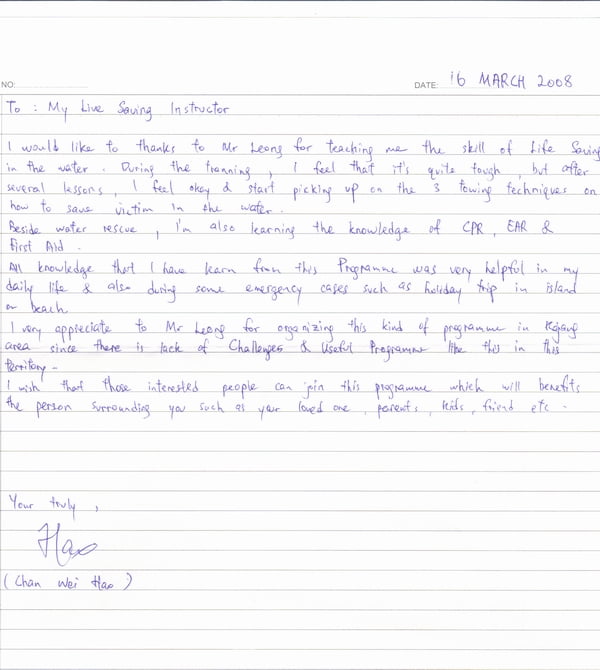 NO:
DATE: 16 MARCH 2008
To : My Live Saving Instructor
I would like to thanks to Mr Leong for teaching me the skill of Life Saving
in the water. During the tranning, I feel that it's quite tough, but after
several lessons, I feel okay & start picking up on the 3 towing techniques on
how to save victim in the water.
Beside water rescue, I'm also learning the knowledge of CPR, EAR &
First Aid.
All knowledge that I have learn from this Programme was very helpful in my
daily life & also during some emergency cases such as holiday trip in island
or beach.
I very appreciate to Mr Leong for organizing this kind of programme in Kajang
area since there is lack of Challenges & Useful Programme like this in this
territory.
I wish that those interested people can join this programme which will benefits
the person surrounding you such as your loved one, parents, kids, friend etc.
Your truly,
Hao
(Chan Wei Hao)